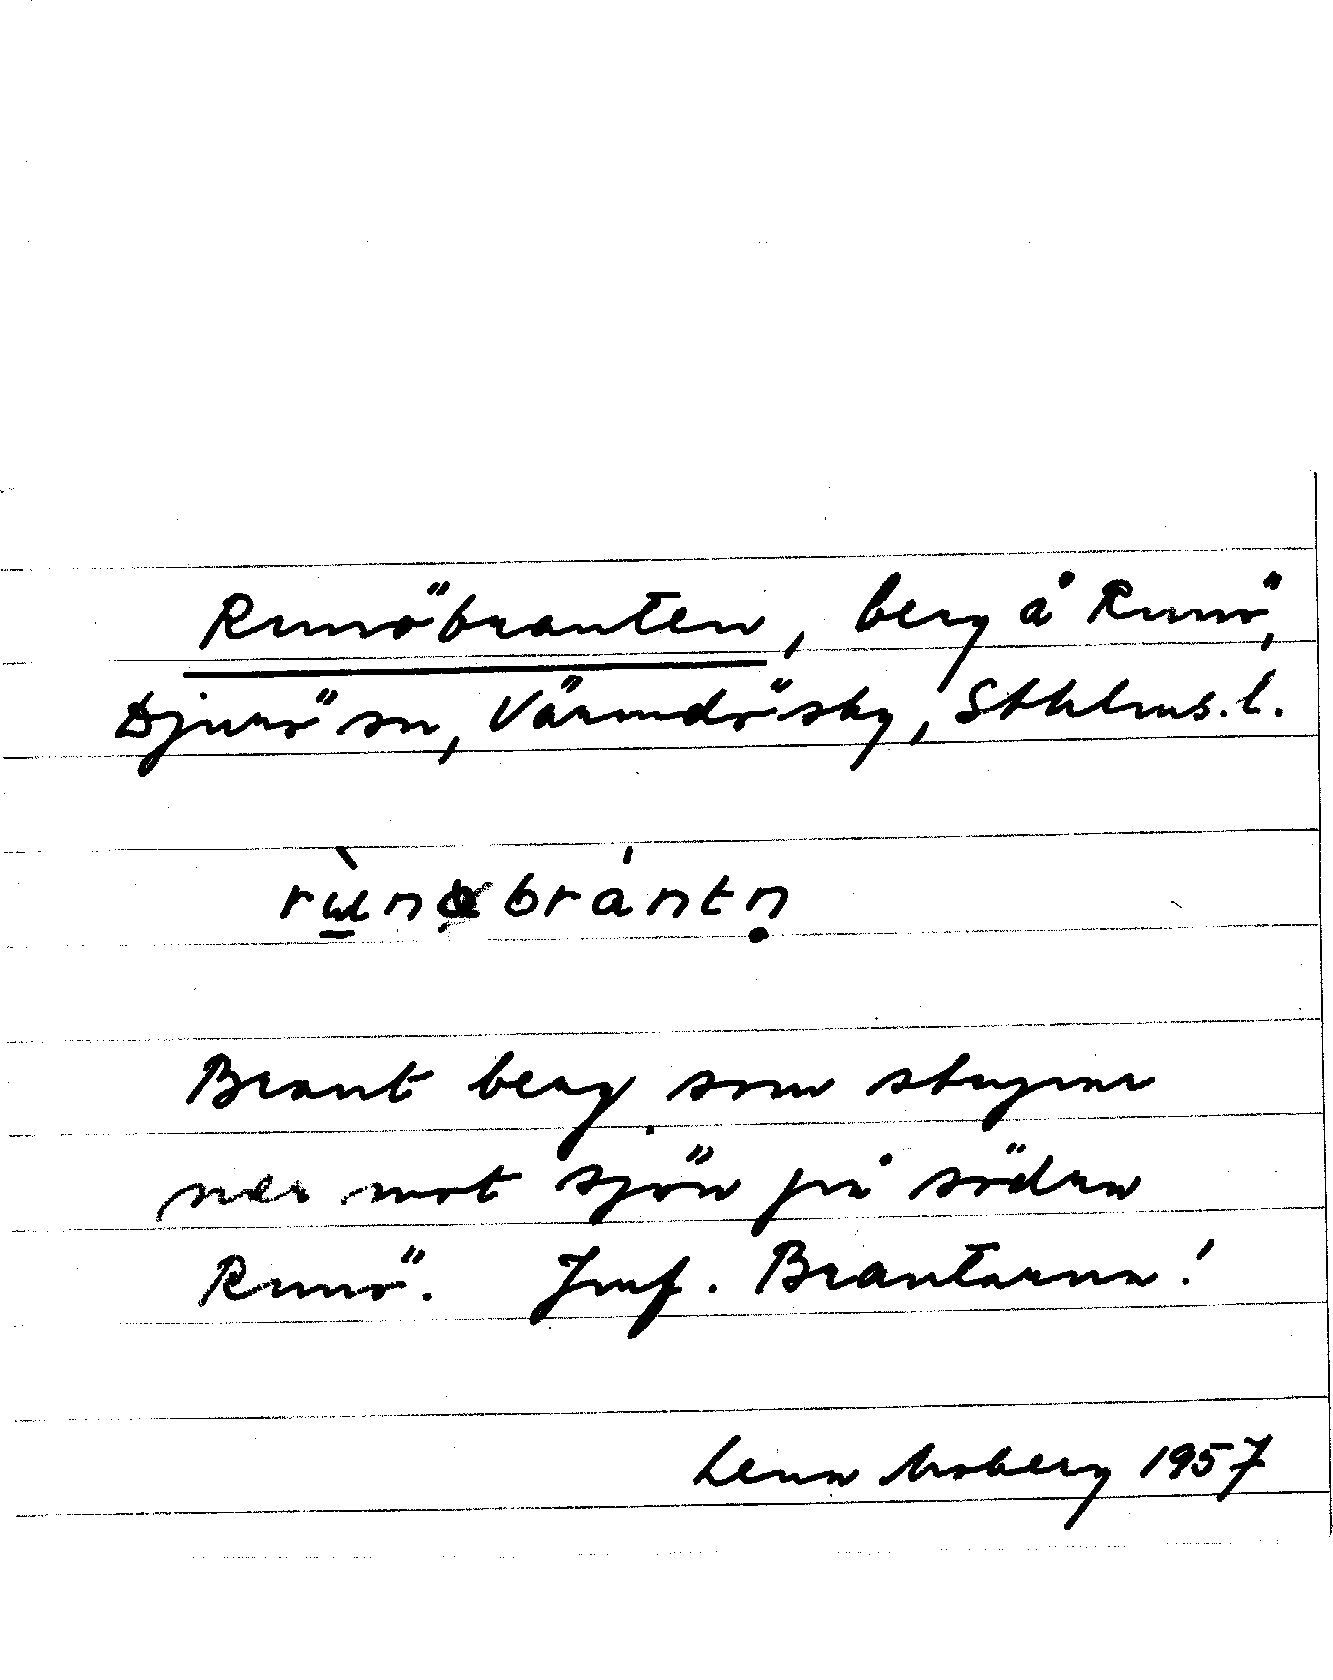 Runöbranten, berg å Runö,
Djurö sn, Värmdö skg, Sthlms. l.
rùnəbrántn̥
Brant berg som stupar
ner mot sjön på södra
Runö. Jmf. Brantarna!
Lena Moberg 1957